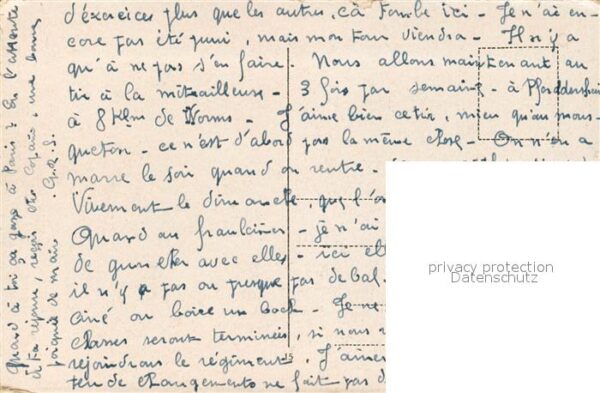 d'exercices plus que les autres, çà tombe ici - Je n'ai en-
core pas été puni, mais mon tour viendra - Il n'y a
qu'à ne pas s'en faire. Nous allons maintenant au
tir à la mitrailleuse - 3 fois par semaine - à Pfeddersheim
à 8 Klm de Worms - J'aime bien ce tir, mieux qu'au mous-
queton - ce n'est d'abord pas la même chose - On n'en a
marre le soir quand on rentre -
Vivement le dimanche, que l'on
Quand au fraulaines - je n'ai
de guincher avec elles - ici ell
il n'y a pas ou presque pas de bal.
ciné ou boire un bock - Je ne
classes seront terminées, si nous
rejoindrons le régiment. J'aimer
ten de changements ne fait pas d
Quand à toi ça gaze à Paris ? En l'attente
de ta réponse, reçois cher copain, une bonne
poignée de main
privacy protection
Datenschutz